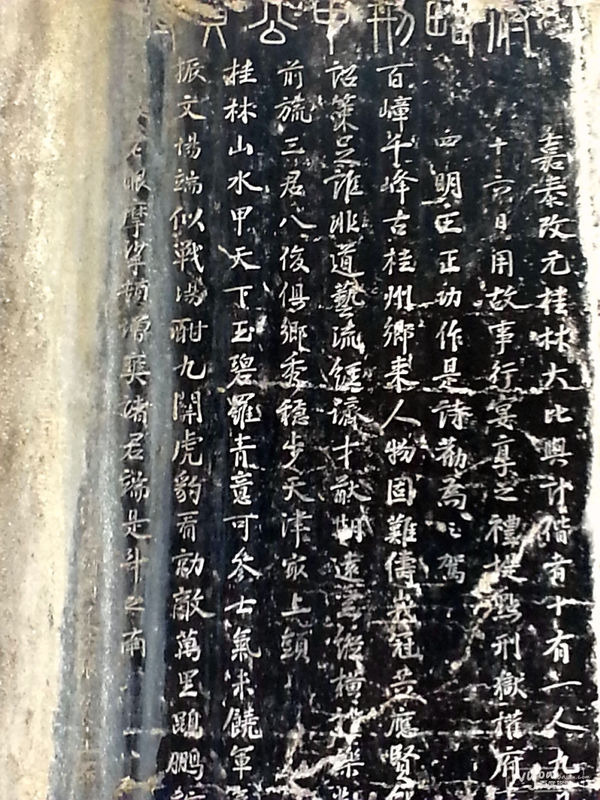 嘉泰改元桂林大比與計偕者十有一人九
十六日用故事行宴享之禮提點刑獄權府
四明王正功作是詩勸為之駕
百嶂千峰古桂州鄉來人物固難儔峩冠共應賢能
詔策足誰非道藝流經濟才猷期遠業縱橫禮樂
前旒三君八俊俱鄉秀穩步天津最上頭
桂林山水甲天下玉碧羅青意可參士氣未饒軍
振文場端似戰場酣九關虎豹看勍敵萬里鵾鵬
老眼摩挲頓增爽諸君端是斗之南